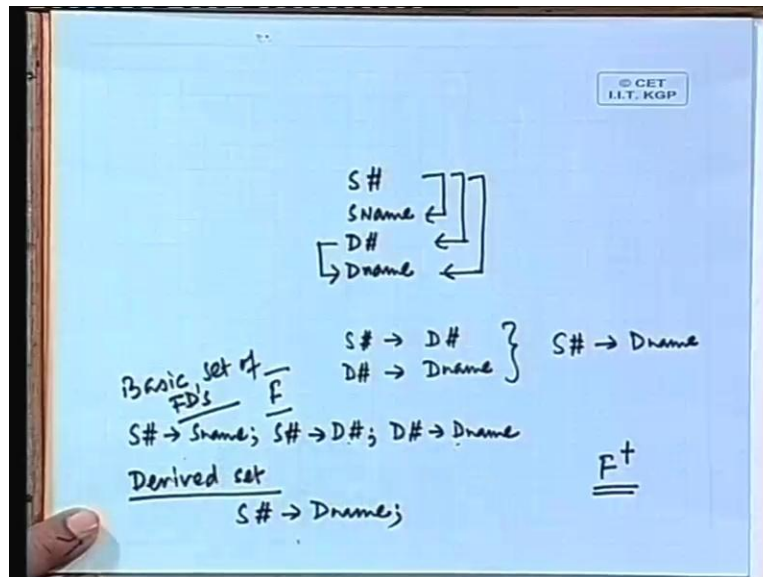 © CET
I.I.T. KGP
S#
SName
D#
Dname
S# → D#
D# → Dname } S# → Dname
Basic set of F
FD'S
S# → Sname; S# → D#; D# → Dname
Derived set
F+
S# → Dname;